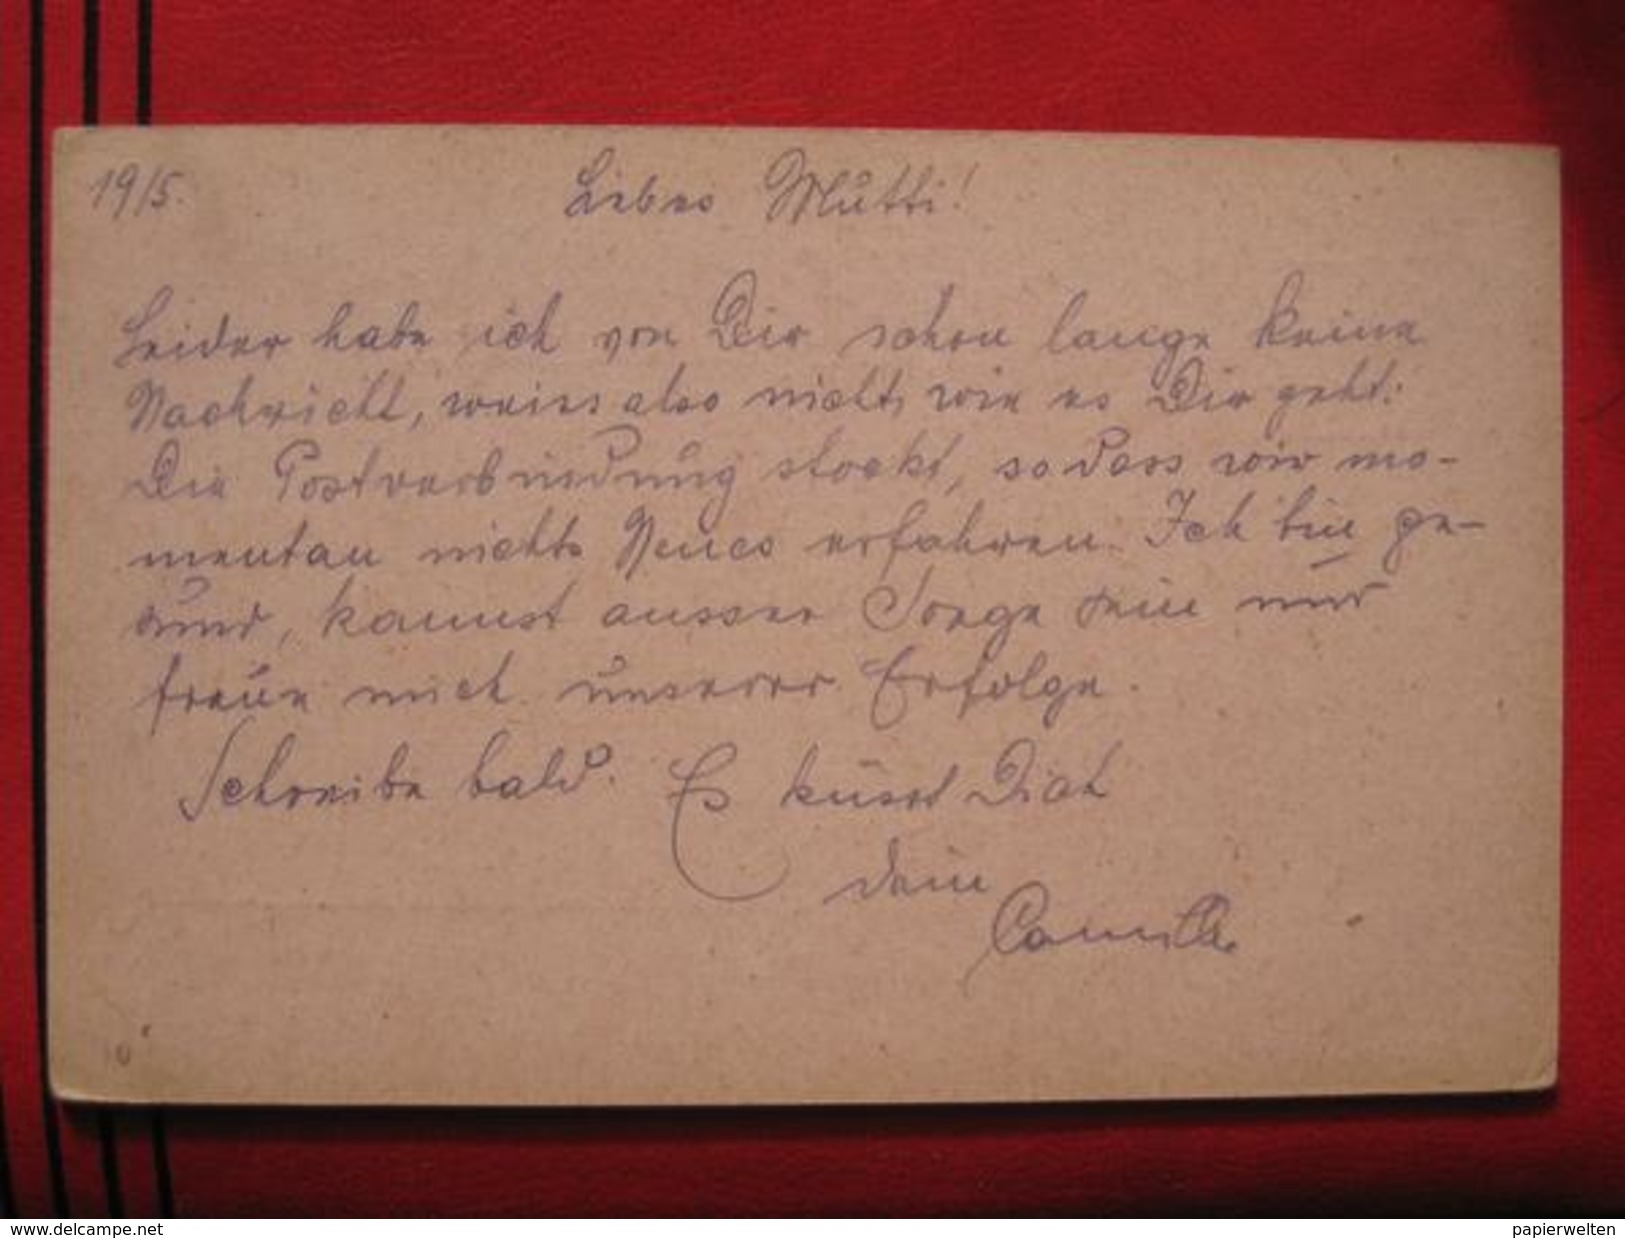 19/5. Liebes Mutti!
Leider habe ich von Dir schon lange keine
Nachricht, weiss also nicht, wie es Dir geht.
Die Postverbindung stockt, so dass wir mo-
mentan nichts Neues erfahren. Ich bin ge-
sund, kannst ausser Sorge sein und
freue mich unserer Erfolge.
Schreibe bald. Es küsst Dich
dein
Camillo
www.delcampe.net
papierwelten